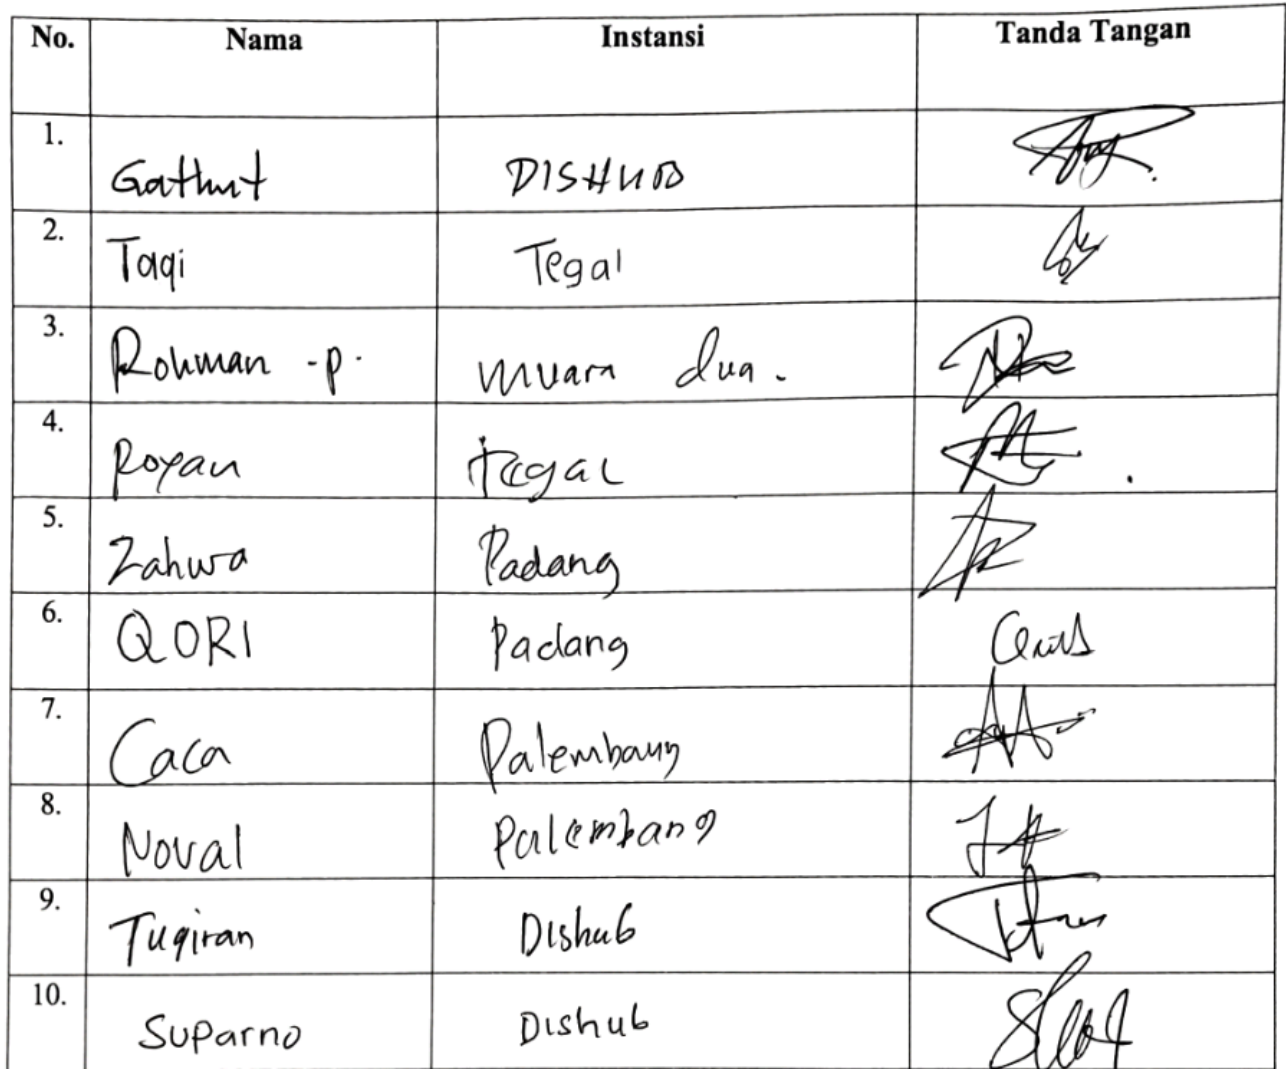 No. Nama Instansi Tanda Tangan
1. Gathut DISHUB
2. Taqi Tegal
3. Rohman -p. muara dua.
4. Royan tegal
5. Zahwa Padang
6. QORI Padang
7. Caca Palembang
8. Noval Palembang
9. Tugiran Dishub
10. Suparno Dishub